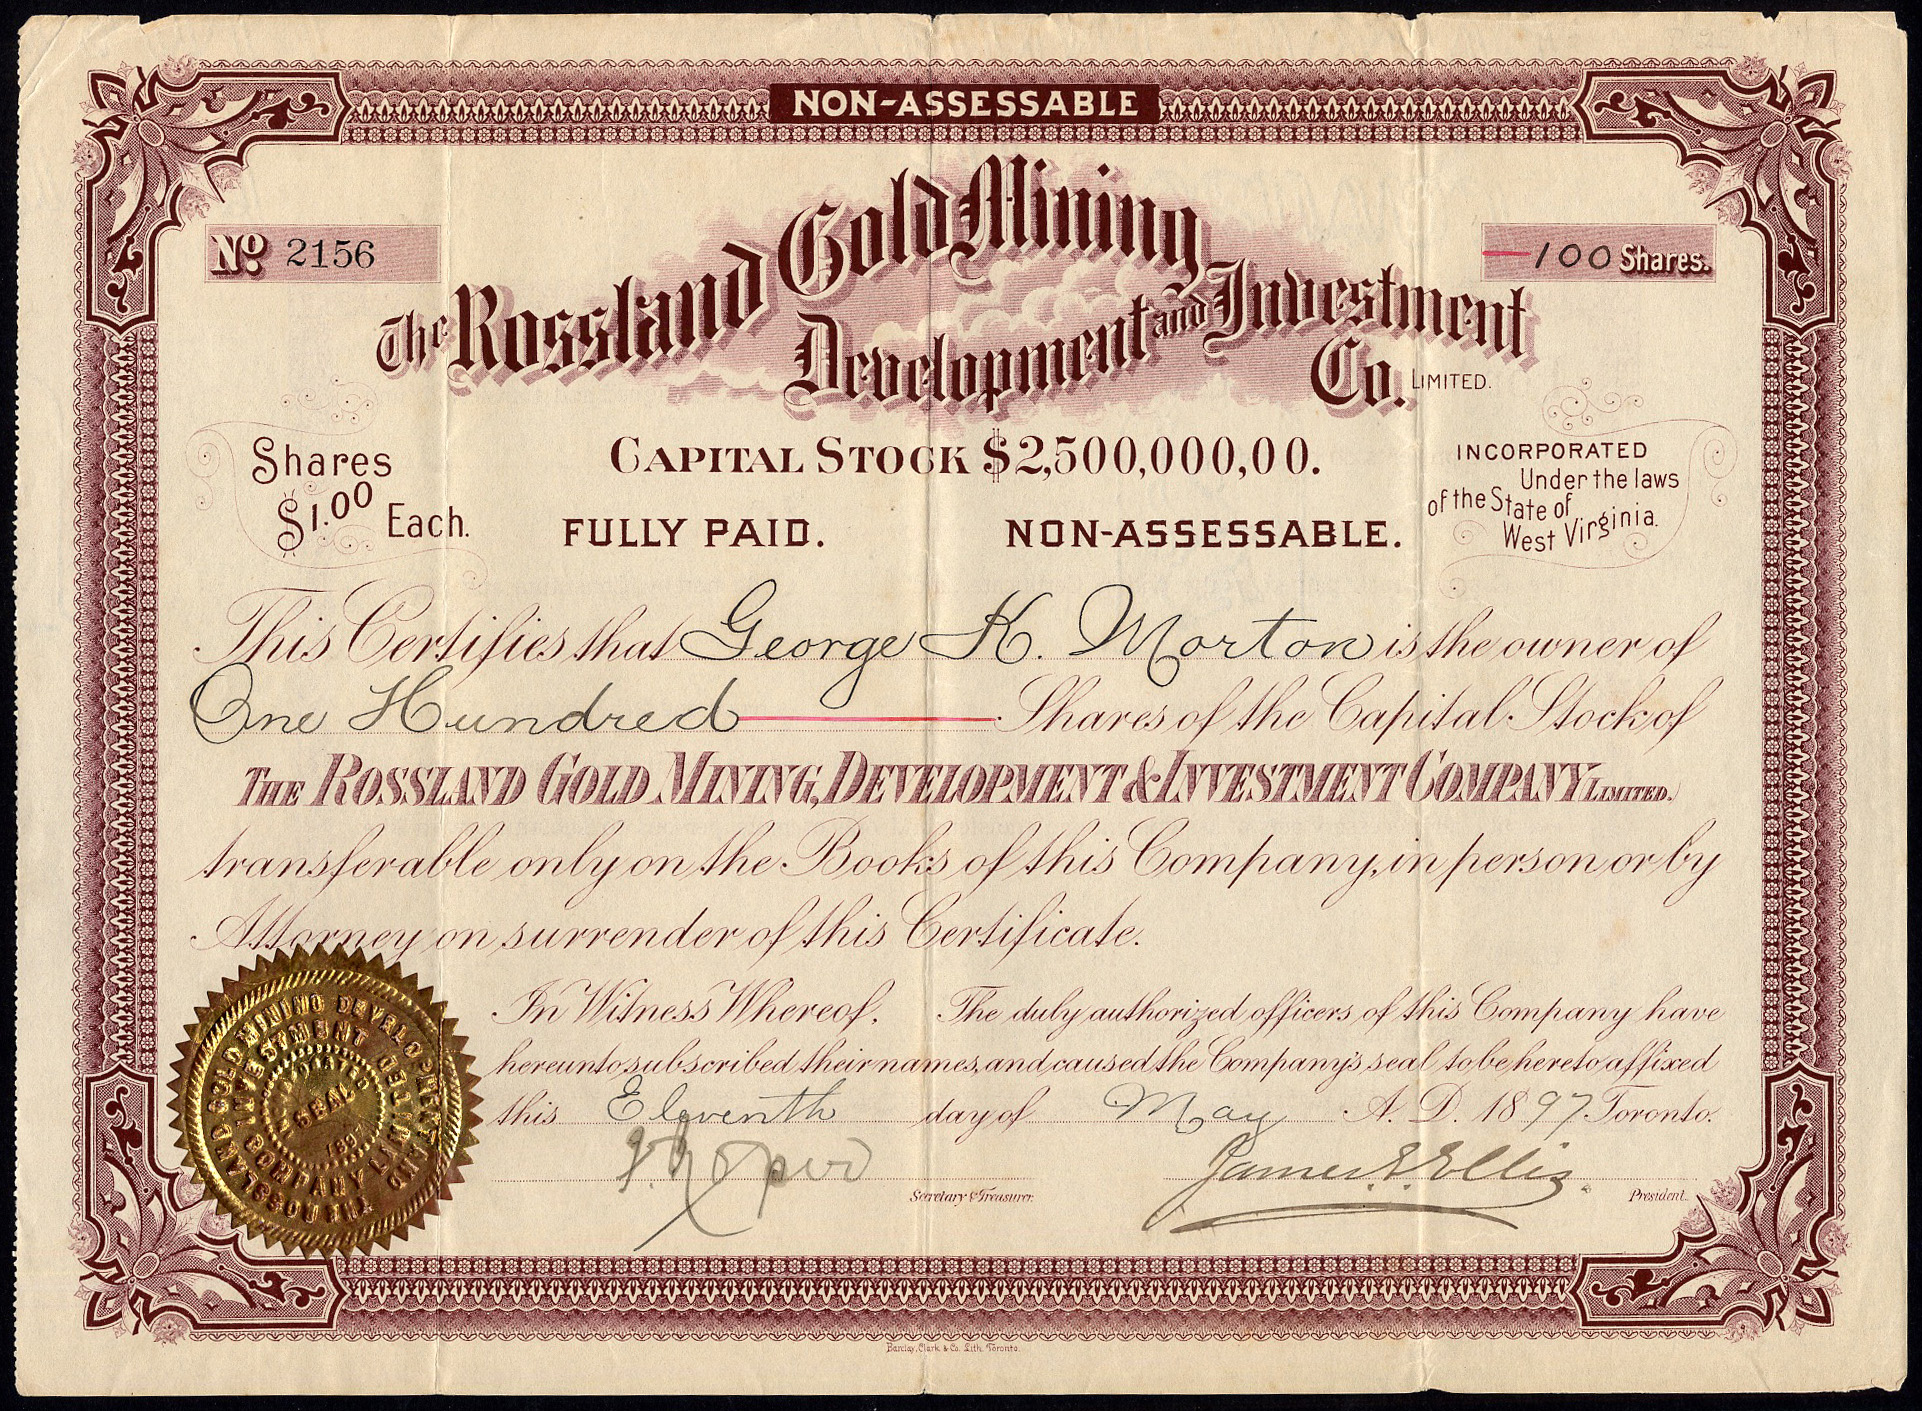 NON-ASSESSABLE
No. 2156
100 Shares.
The Rossland Gold Mining
Development and Investment
Co. LIMITED.
Shares
$1.00 Each.
CAPITAL STOCK $2,500,000,00.
FULLY PAID. NON-ASSESSABLE.
INCORPORATED
Under the laws
of the State of
West Virginia.
This Certifies that George K. Morton is the owner of
One Hundred Shares of the Capital Stock of
THE ROSSLAND GOLD MINING, DEVELOPMENT & INVESTMENT COMPANY LIMITED.
transferable only on the Books of this Company, in person or by
Attorney on surrender of this Certificate.
In Witness Whereof. The duly authorized officers of this Company have
hereunto subscribed their names, and caused the Company's seal to be hereto affixed
this Eleventh day of May A. D. 1897 Toronto.
Secretary & Treasurer.
James E. Ellis. President.
THE ROSSLAND GOLD MINING DEVELOPMENT AND
INVESTMENT COMPANY LIMITED
INCORPORATED
SEAL
1897
Barclay, Clark & Co. Lith. Toronto.